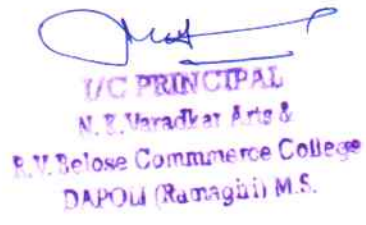 I/C PRINCIPAL
N. K. Varadkar Arts &
R.V. Belose Commmerce College
DAPOLI (Ratnagiri) M.S.